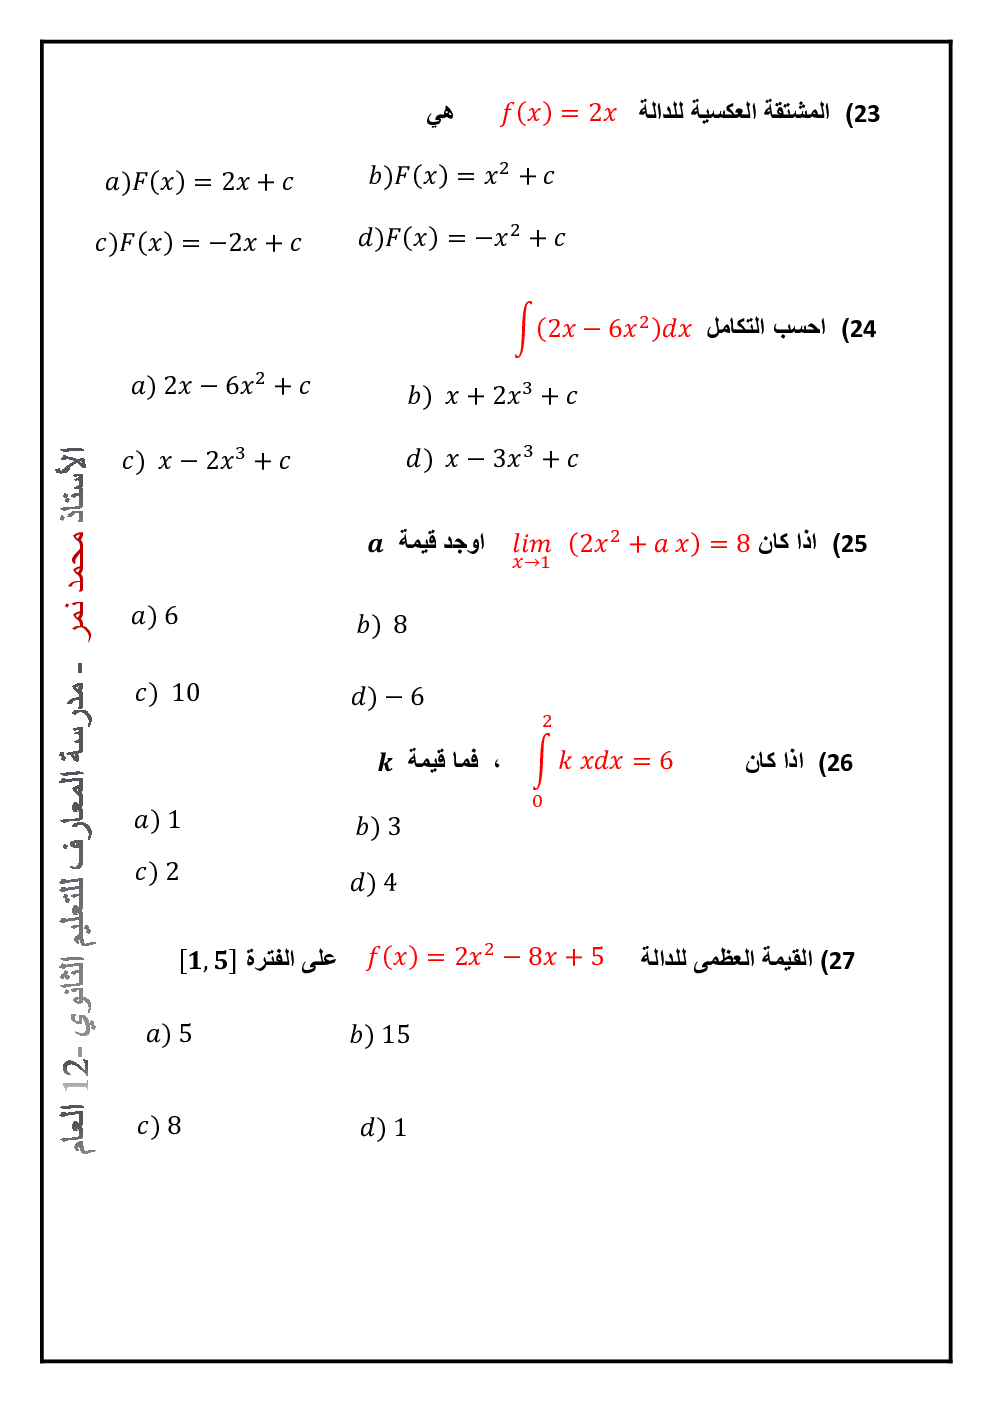 23) المشتقة العكسية للدالة f(x) = 2x هي
a)F(x) = 2x + c b)F(x) = x² + c
c)F(x) = −2x + c d)F(x) = −x² + c
24) احسب التكامل ∫(2x − 6x²)dx
a) 2x − 6x² + c b) x + 2x³ + c
c) x − 2x³ + c d) x − 3x³ + c
25) اذا كان lim x→1 (2x² + a x) = 8 اوجد قيمة a
a) 6 b) 8
c) 10 d) − 6
26) اذا كان ∫₀² k xdx = 6 ، فما قيمة k
a) 1 b) 3
c) 2 d) 4
27) القيمة العظمى للدالة f(x) = 2x² − 8x + 5 على الفترة [1, 5]
a) 5 b) 15
c) 8 d) 1
الأستاذ محمد نمر - مدرسة المعارف للتعليم الثانوي -12 العام